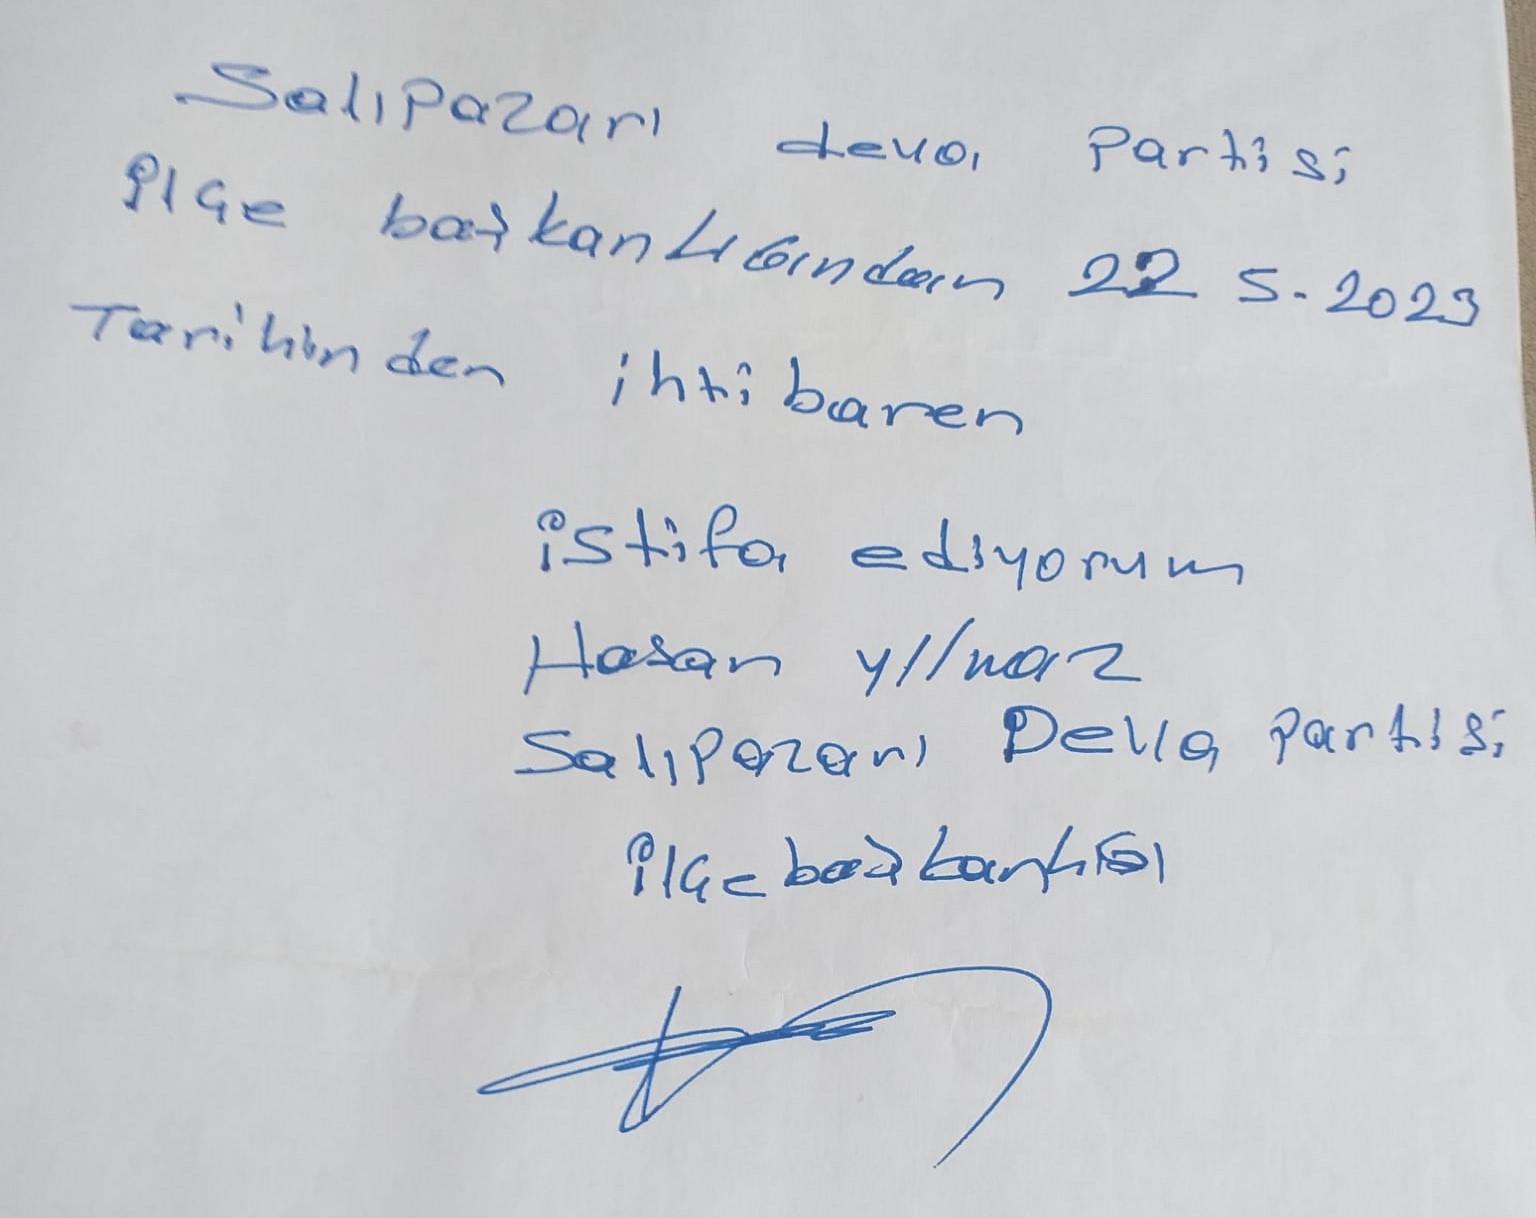 Salıpazarı deva Partisi
ilçe başkanlığından 22 5.2023
Tarihinden ihtibaren
istifa ediyorum
Hasan yılmaz
Salıpazarı Deva Partisi
ilçe başkanlığı